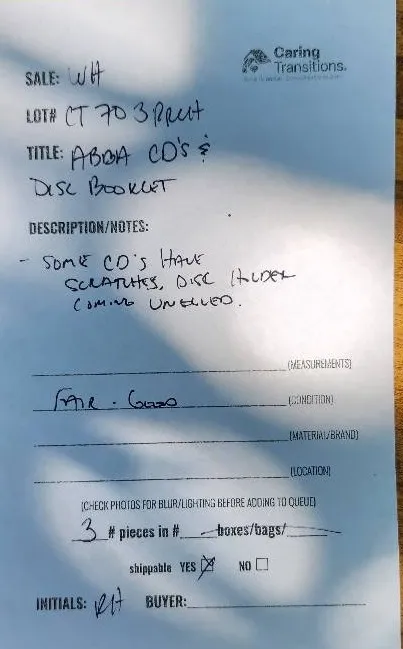 Caring
Transitions.
SALE: WH
LOT# CT 70 3
TITLE: ABBA CD'S &
DISC BOOKLET
DESCRIPTION/NOTES:
- SOME CD'S HAVE
SCRATCHES, DISC HOLDER
COMING UNGLUED.
(MEASUREMENTS)
FAIR - GOOD (CONDITION)
(MATERIAL/BRAND)
(LOCATION)
(CHECK PHOTOS FOR BLUR/LIGHTING BEFORE ADDING TO QUEUE)
3 # pieces in # boxes/bags/
shippable YES NO
INITIALS: RH BUYER: